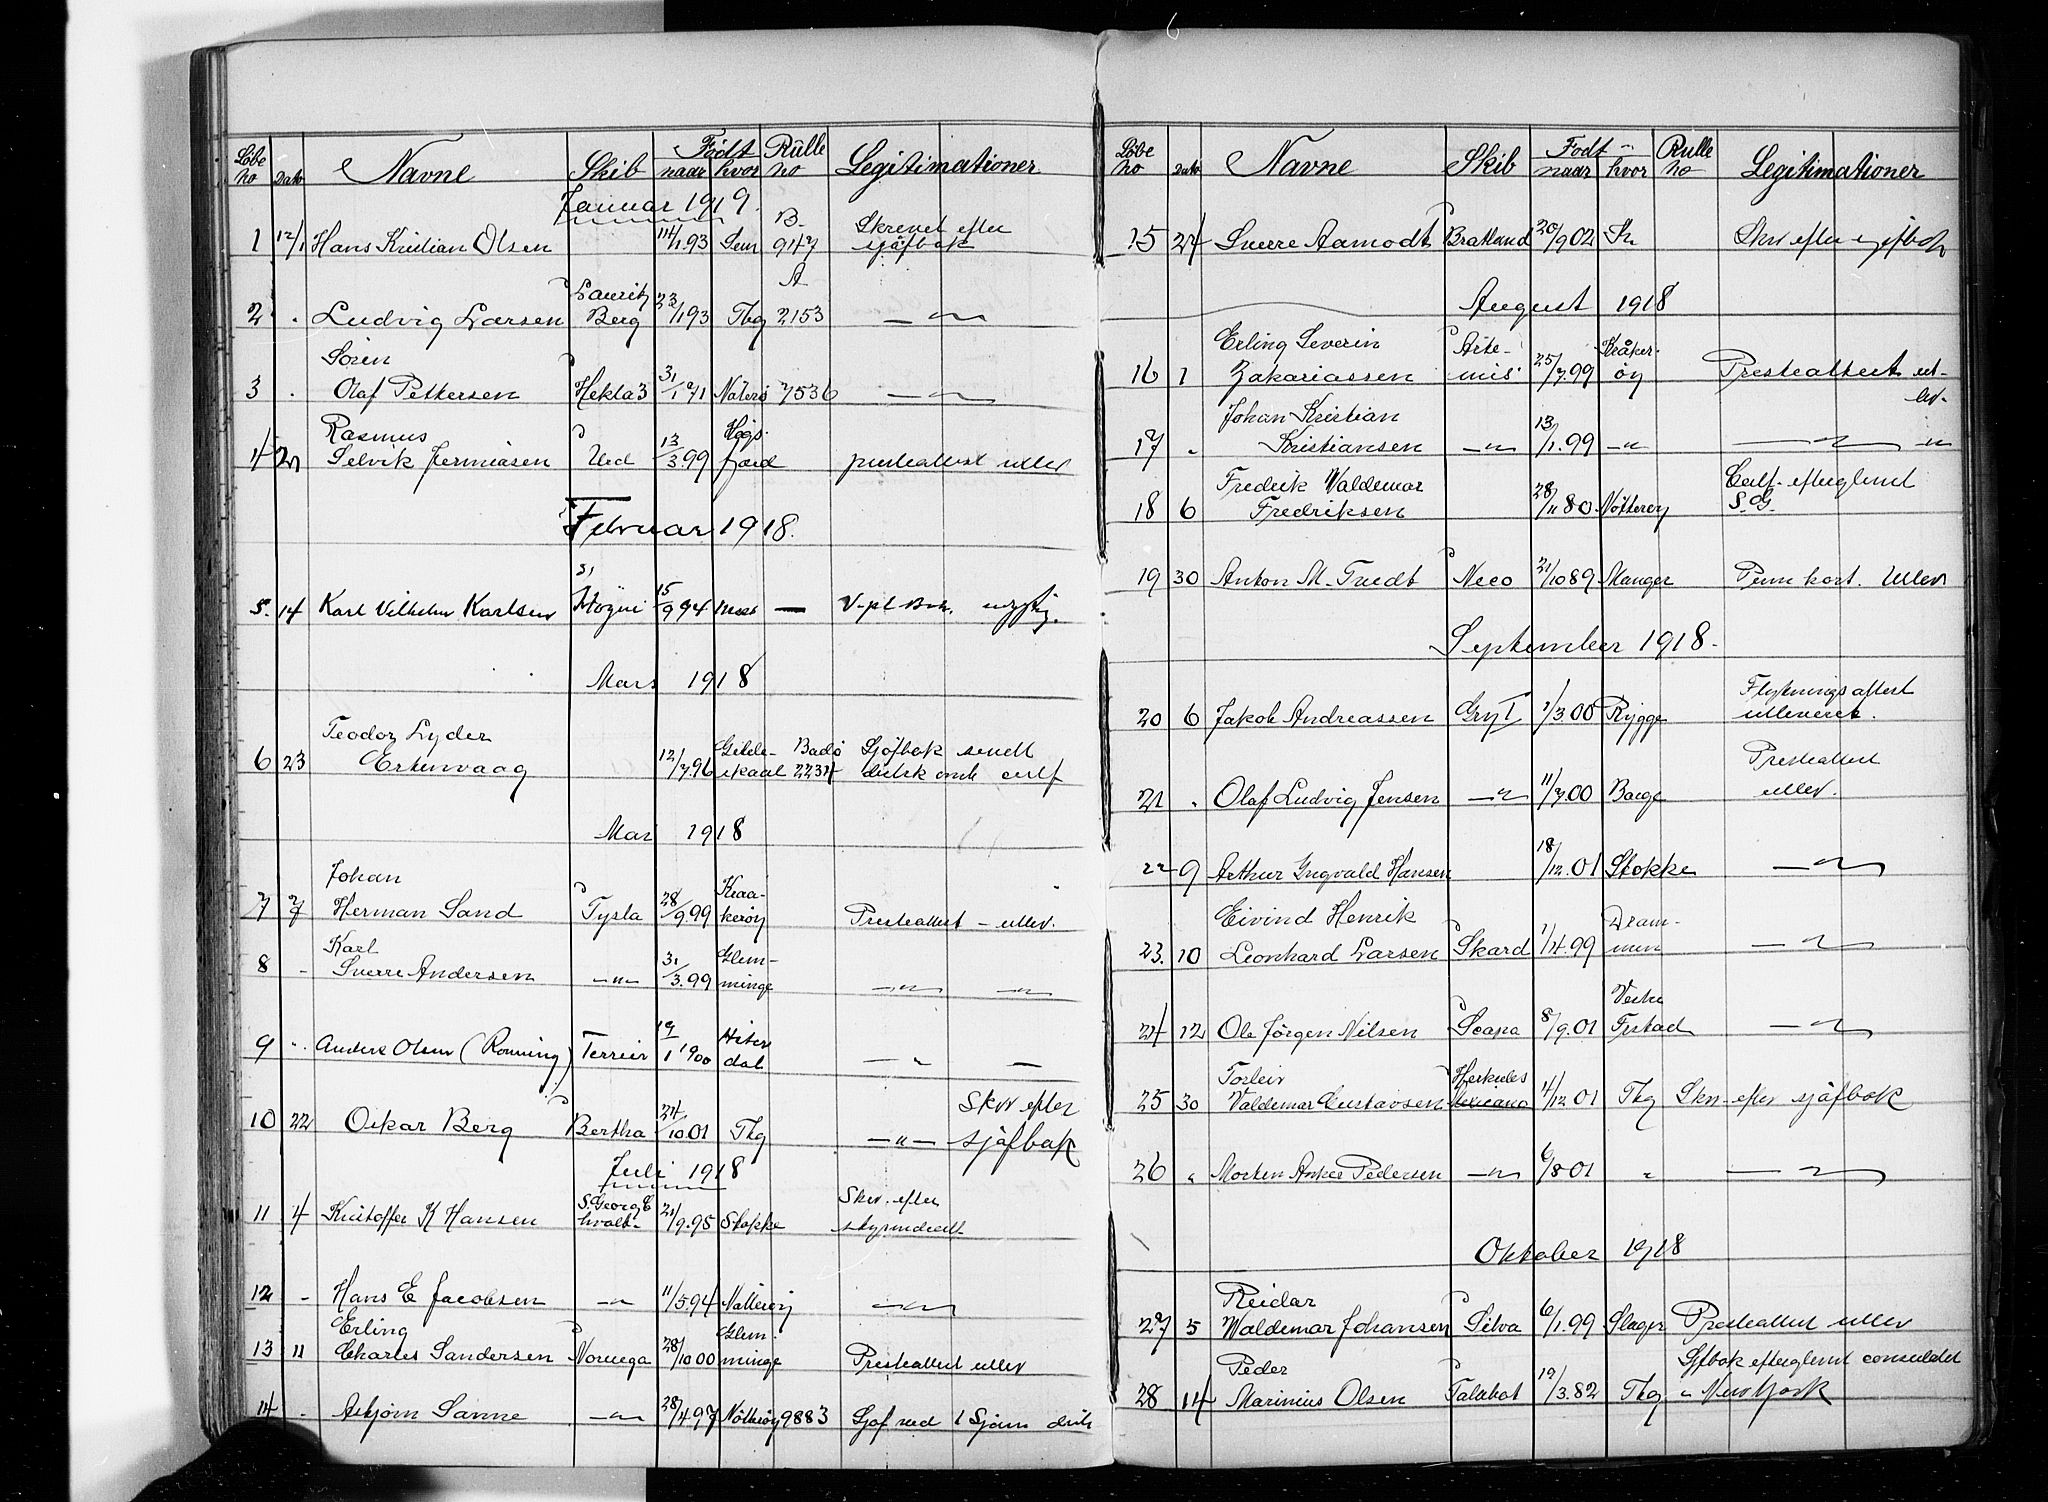 Løbe no Dato Navne Skib Født naar hvor Rulle no Legitimationer
Januar 1919.
1 12/1 Hans Kristian Olsen 14/1.93 Sem B- 9147 Skrevet efter sjøfbok
2 . Ludvig Larsen Lauritz Berg 23/1 93 Tbg A 2153 — " —
3 . Sören Olaf Pettersen Hekla 3 31/1 71 Nøterö 7536 — " —
4 21 Rasmus Selvik Jermiasen Ued 13/3.99 Høgsfjord presteattest utlev
Februar 1918.
5. 14 Karl Vilhelm Karlsen 15/9 94 Moss —
Mars 1918
6 23 Teodor Lyder 12/7.96 Gildeskaal Bodø 2234 Sjöfbok sendt
Mai 1918
7 7 Johan Herman Sand Tysla 28/9.99 Kraakeröy Presteattest - utlev.
8 - Karl Sverre Andersen — " — 31/3.99 Glemminge — " — — " —
9 " Anders Olsen (Ronning) Terrier 19/1 1900 Hiterdal — " — —
10 22 Oskar Berg Bertha 24/10 01 Tbg — " — Skrv efter sjøfbok
Juli 1918
11 4 Kristoffer K Hansen S. Georg E hvalb- 21/9.95 Stokke Skrv. efter
12 - Hans E Jacobsen — " — 11/5 94 Nötteröy — " —
13 11 Erling Charles Sandersen Noruega 28/10 00 Glemminge Presteattest utlev
14 . Asbjørn Sanne — " — 28/4.97 Nötteröy 9883 Sjøf. ved
Løbe no Dato Navne Skib Født naar hvor Rulle no Legitimationer
15 24 Sverre Aamodt Bratland 20/9 02 Skr efter sjøfbok
August 1918
16 1 Erling Severin Zakariassen Artemis 25/7.99 Kråkeröy Presteattest utlev-
17 " Johan Kristian Kristiansen — " — 13/1.99 — " — — " — "
18 6 Fredrik Waldemar Fredriksen 28/11 80 Nötteröy Celf. efterglemt S. G.
19 30 Anton M. Tvedt Neco 21/10 89 Manger kort. Utlev
September 1918.
20 6 Jakob Andreassen Gry I 1/3.00 Rygge Flytningsattest utleveret.
21 . Olaf Ludvig Jensen — " — 11/7.00 Borge Presteattest utlev.
22 9 Arthur Ingvald Hansen 18/12.01 Stokke — " —
23. 10 Eivind Henrik Leonhard Larsen Skard 1/4.99 Drammen — " —
24 12 Ole Jörgen Nilsen Scapa 8/9.01 — " —
25 30 Torleiv Valdemar Gustavsen Herkules Mexicano 4/12 01 Tbg Skr. efter sjøfbok
26 " Morten Anker Pedersen — " — 6/8 01 " — " —
Oktober 1918
27 5 Reidar Waldemar Johansen Silva 6/1.99 Slagen Presteattest utlev
28 14 Peder Marinius Olsen Talabot 19/3.82 Tbg Sjfbok efterglemt consulatet i New York